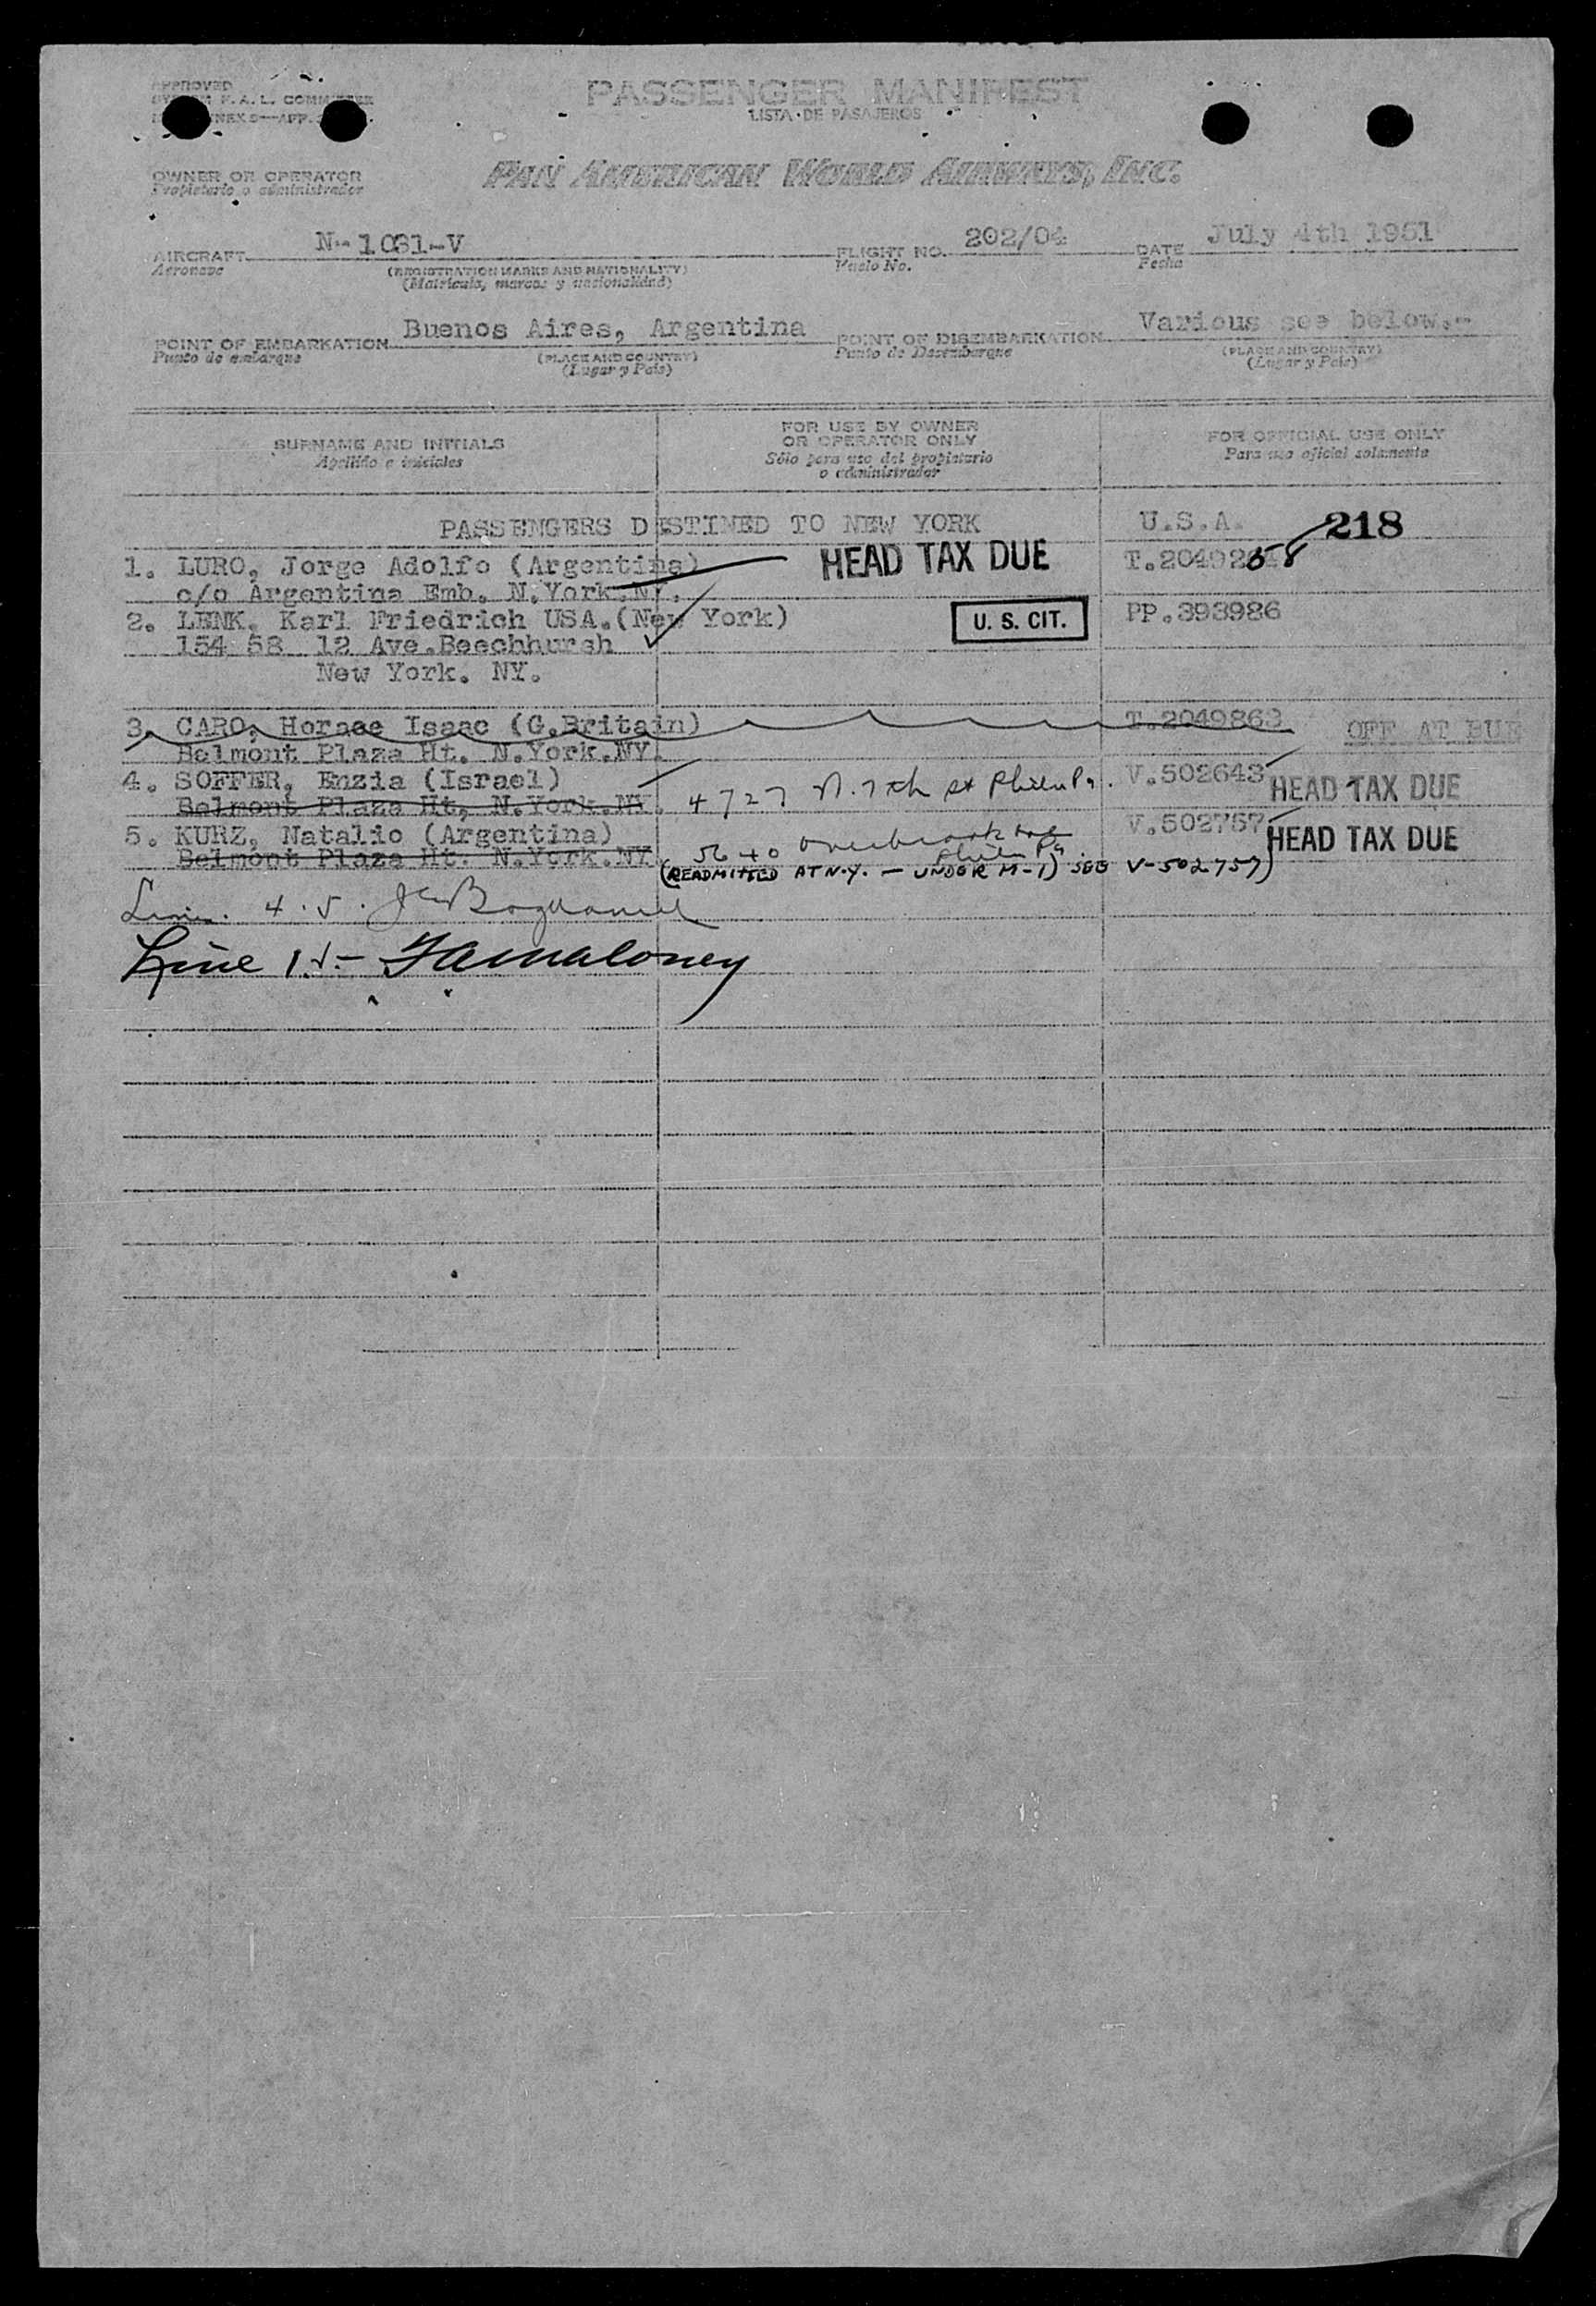 APPROVED
PASSENGER MANIFEST
F.A.L. COMMITTEE
LISTA DE PASAJEROS
ANNEX 9—APP.
OWNER OR OPERATOR
Propietario o administrador
PAN AMERICAN WORLD AIRWAYS, INC.
AIRCRAFT N-1031-V FLIGHT NO. 202/04 DATE July 4th 1951
Aeronave (REGISTRATION MARKS AND NATIONALITY) Vuelo No. Fecha
(Matricula, marcas y nacionalidad)
POINT OF EMBARKATION Buenos Aires, Argentina POINT OF DISEMBARKATION Various see below.-
Punto de embarque (PLACE AND COUNTRY) Punto de Desembarque (PLACE AND COUNTRY)
(Lugar y País) (Lugar y País)
SURNAME AND INITIALS FOR USE BY OWNER OR OPERATOR ONLY FOR OFFICIAL USE ONLY
Apellido e iniciales Sólo para uso del propietario o administrador Para uso oficial solamente
PASSENGERS DESTINED TO NEW YORK U.S.A. 218
1. LURO, Jorge Adolfo (Argentina) HEAD TAX DUE T.2049258
c/o Argentina Emb. N.York.NY.
2. LENK, Karl Friedrich USA.(New York) U. S. CIT. PP.393986
154 58 12 Ave.Beechhursh
New York. NY.
3. CARO, Horace Isaac (G.Britain) T.2049863 OFF AT BUE
Belmont Plaza Ht. N.York.NY.
4. SOFFER, Enzia (Israel) V.502643 HEAD TAX DUE
Belmont Plaza Ht, N.York.NY. 4727 N. 7th st Phila Pa.
5. KURZ, Natalio (Argentina) V.502757 HEAD TAX DUE
Belmont Plaza Ht. N.York.NY. 5640 Overbrook Ave Phila Pa.
(READMITTED AT N.Y. — UNDER M-1) SEE V-502757)
Line 4.5.
Line 1.2- Maloney